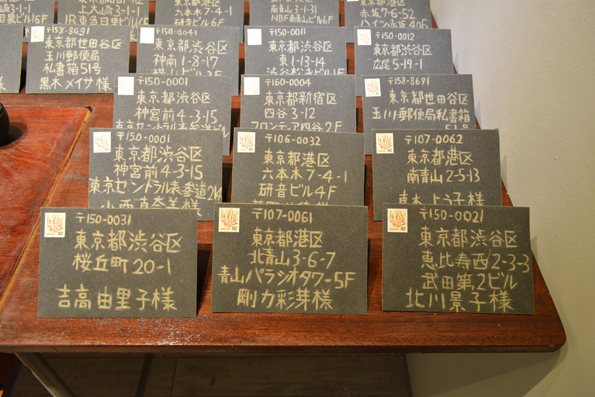 上大崎3-1-1
JR東急目黒ビル
六本木7-4-1
研音ビル6F
南青山3-1-31
NBF南青山ビル6F
赤坂7-6-52
〒158-8691
東京都世田谷区
玉川郵便局
私書箱51号
黒木メイサ様
〒150-0041
東京都渋谷区
神南1-8-17
〒150-0011
東京都渋谷区
東1-13-14
〒150-0012
東京都渋谷区
広尾5-19-1
〒150-0001
東京都渋谷区
神宮前4-3-15
東京セントラル表参道
〒160-0004
東京都新宿区
四谷3-12
フロンティア四谷2F
〒158-8691
東京都世田谷区
玉川郵便局私書箱
51号
〒150-0001
東京都渋谷区
神宮前4-3-15
東京セントラル表参道214
小西真奈美様
〒106-0032
東京都港区
六本木7-4-1
研音ビル4F
〒107-0062
東京都港区
南青山2-5-13
真木よう子様
〒150-0031
東京都渋谷区
桜丘町20-1
吉高由里子様
〒107-0061
東京都港区
北青山3-6-7
青山パラシオタワ-5F
剛力彩芽様
〒150-0021
東京都渋谷区
恵比寿西2-3-3
武田第2ビル
北川景子様